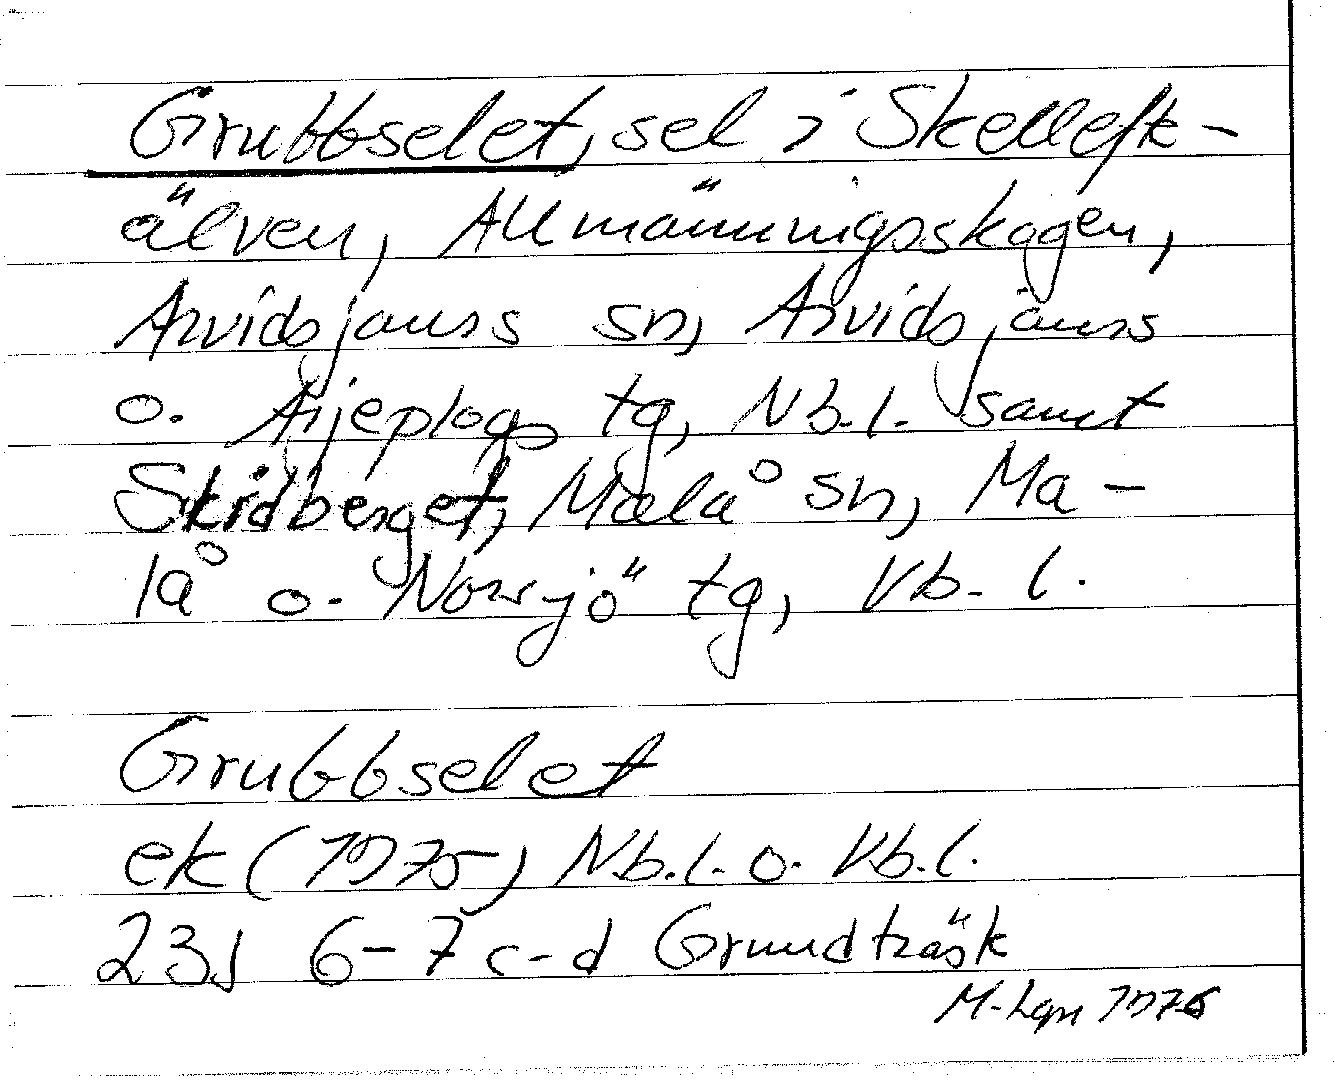 Grubbselet, sel i Skelleft-
älven, Allmänningsskogen,
Arvidsjaurs sn, Arvidsjaurs
o. Arjeplogs tg, Nb.l. samt
Skidberget, Malå sn, Ma-
lå o. Norsjö tg, Vb.l.
Grubbselet
ek (1975) Nb.l. o. Vb.l.
23J 6-7 c-d Grundträsk
1976